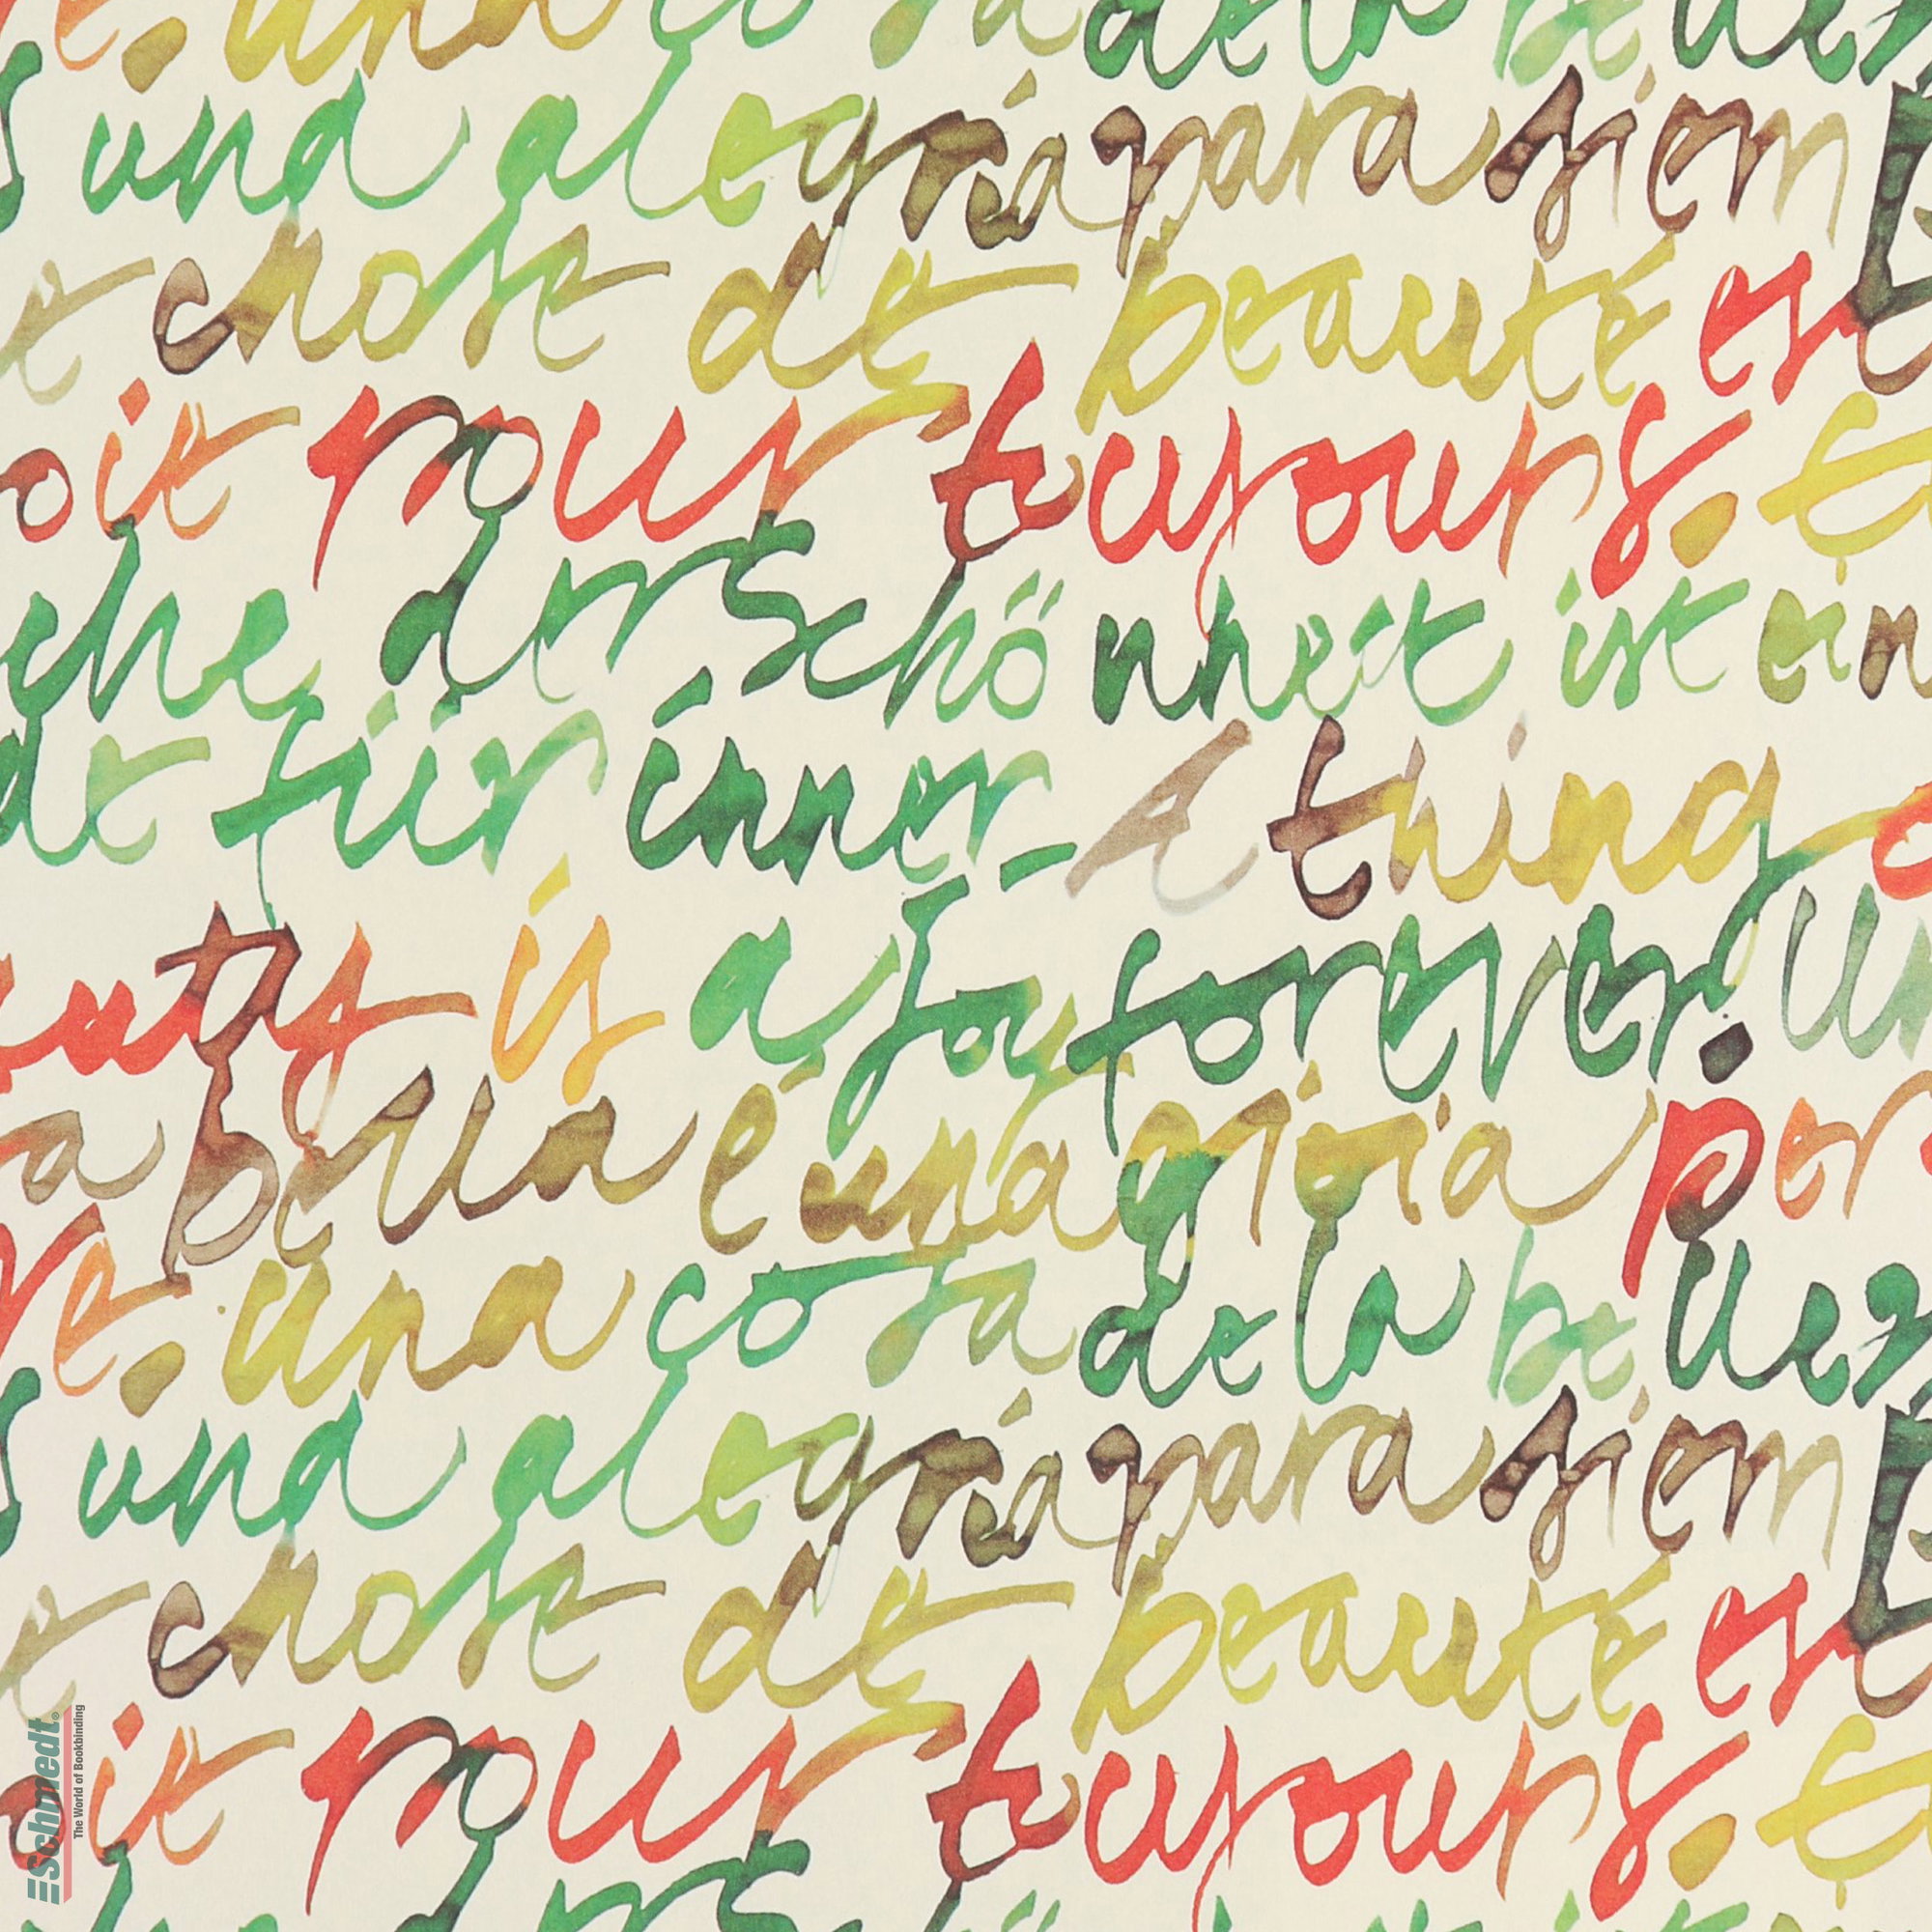 e. una cosa de la bellez
s una alegría para siem
e chose de beauté est
oit pour toujours. E
che der Schönheit ist ein
de für immer_ A thing o
auty is a joy forever. Un
a bella é una gioia per
re. una cosa de la bellez
s una alegría para siem
e chose de beauté est
oit pour toujours. E
Schmedt®
The World of Bookbinding